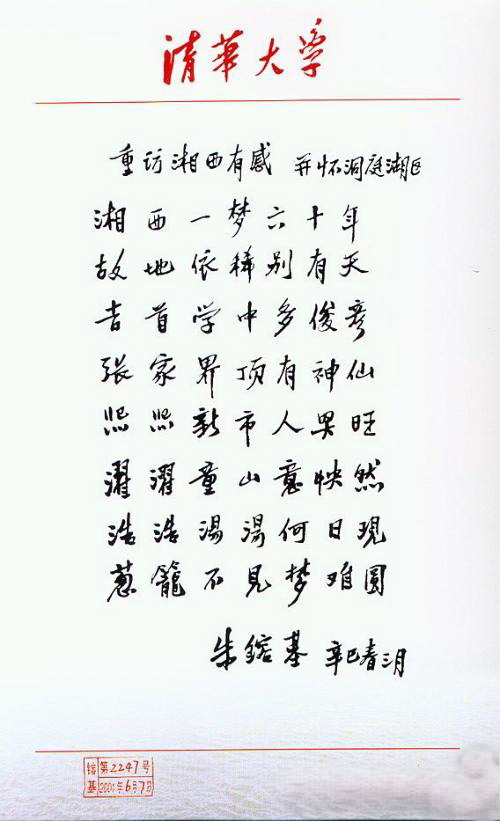 清華大学
重访湘西有感 并怀洞庭湖区
湘西一梦六十年
故地依稀别有天
吉首学中多俊彦
张家界顶有神仙
熙熙新市人兴旺
濯濯童山意怏然
浩浩湯湯何日現
葱籠不见梦难圆
朱鎔基 辛巳春三月
镕基 第2247号
2001年6月7日